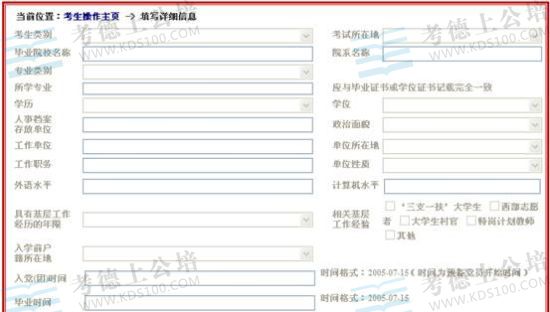 当前位置：考生操作主页 -> 填写详细信息
考生类别 考试所在地
毕业院校名称 院系名称
专业类别
所学专业 应与毕业证书或学位证书记载完全一致
学历 学位
人事档案
存放单位 政治面貌
工作单位 单位所在地
工作职务 单位性质
外语水平 计算机水平
具有基层工作
经历的年限
相关基层
工作经验
'三支一扶'大学生 西部志愿
者 大学生村官 特岗计划教师
其他
入学前户
籍所在地
入党(团)时间 时间格式：2005-07-15（时间为预备党员开始时间）
毕业时间 时间格式：2005-07-15
考德上公培
WWW.KDS100.COM
考德上公培
WWW.KDS100.COM
考德上公培
WWW.KDS100.COM
考德上公培
WWW.KDS100.COM